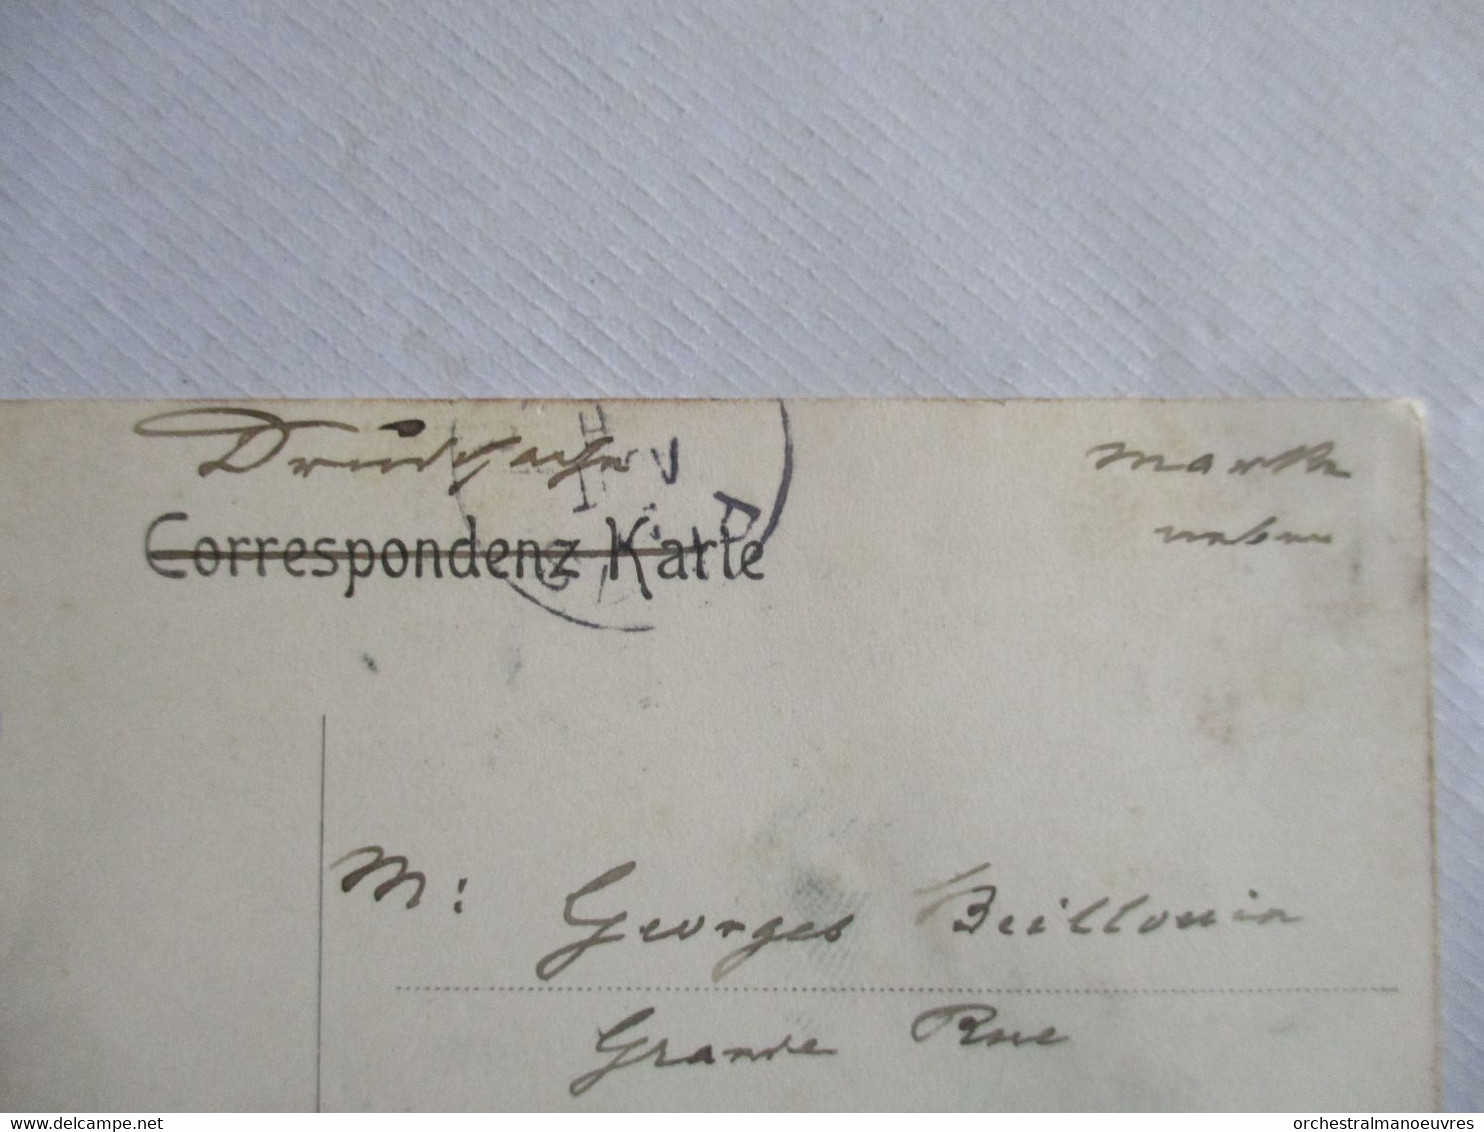 Drucksache
Marke
neben
Correspondenz Karte
M: Georges Beillouin
Grande Rue
delcampe.net
orchestralmanoeuvres